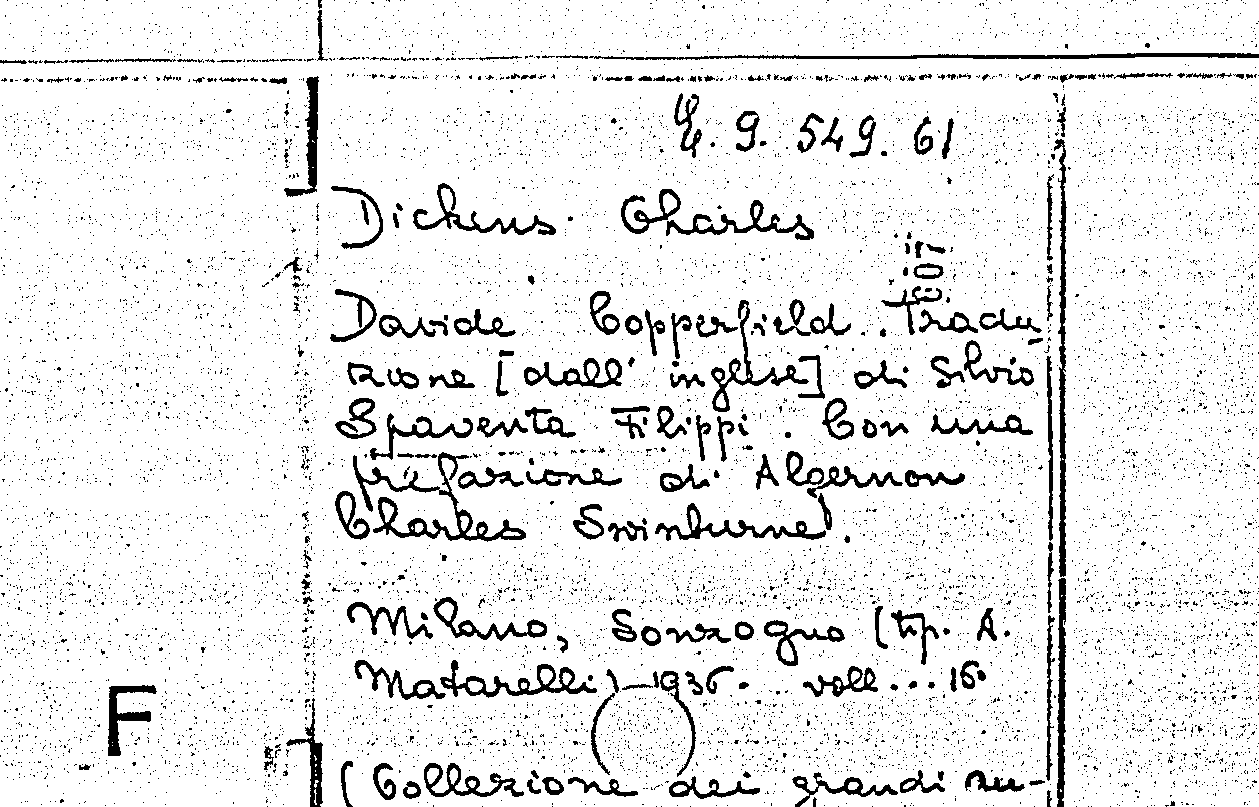 E. 9. 549. 61
Dickens Charles
Davide Copperfield. Tradu
zione [dall' inglese] di Silvio
Spaventa Filippi. Con una
prefazione di Algernon
Charles Swinburne.
Milano, Sonzogno (tip. A.
Matarelli) 1936. voll... 16°
F
(Collezione dei grandi au-